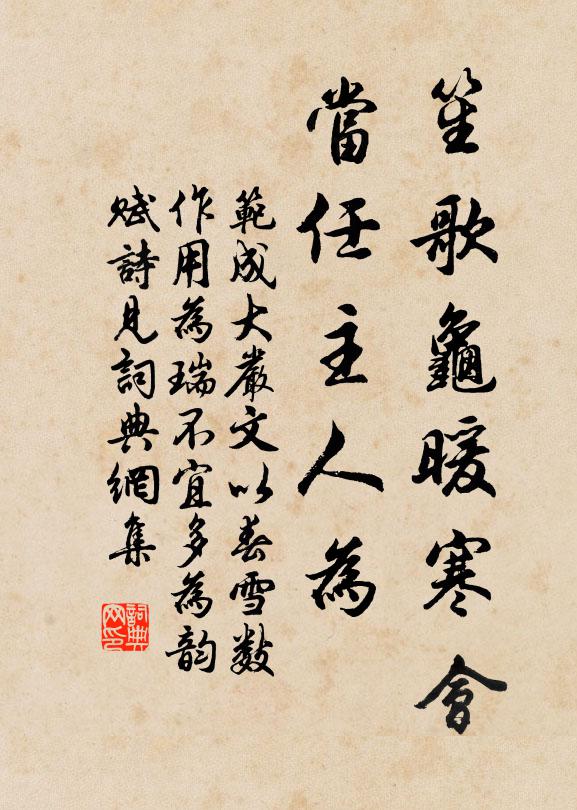 笙歌龜暖寒會
當任主人為
範成大嚴文以春雪數
作用為瑞不宜多為韵
賦詩見詞典網集
詞典
网印